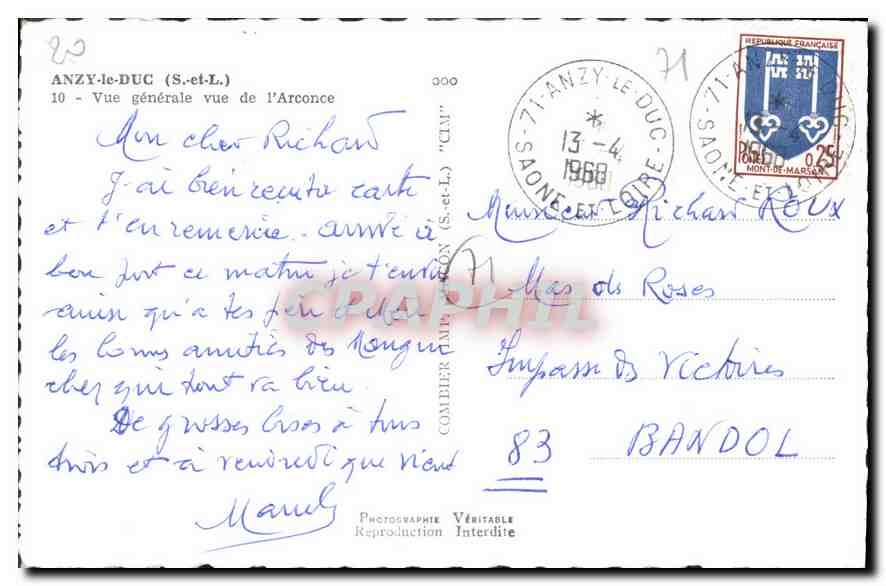 20
ANZY-le-DUC (S.-et-L.)
10 - Vue générale vue de l'Arconce
Mon cher Richard
J'ai bien reçu ta carte
et t'en remercie. arrivé à
bon port ce matin je t'envoie
ainsi qu'à tes père et mère
les bonnes amitiés des
chez qui tout va bien.
De grosses bises à tous
trois et à vendredi qui vient
Marcel
COMBIER IMP. MACON (S.-et-L.) "CIM"
71
71
71-ANZY-LE-DUC
13-4
1968
SAONE-ET-LOIRE
71-ANZY-LE-DUC
SAONE-ET-LOIRE
REPUBLIQUE FRANÇAISE
0,25
POSTES
MONT-DE-MARSAN
Monsieur Richard ROUX
Mas des Roses
Impasse des Victoires
83 BANDOL
PHOTOGRAPHIE VÉRITABLE
Reproduction Interdite
CPAPHIL